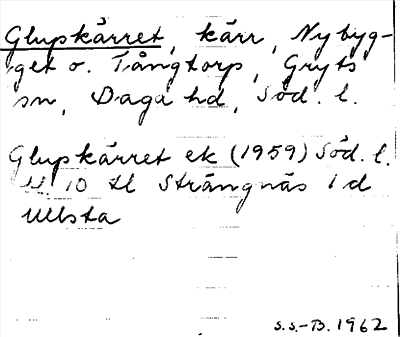 Glupkärret, kärr, Nybyg-
get o. Tångtorp, Gryts
sn, Daga hd, Söd. l.
Glupkärret ek (1959) Söd. l.
10 tl Strängnäs 1 d
Ullsta
S.S.-B. 1962